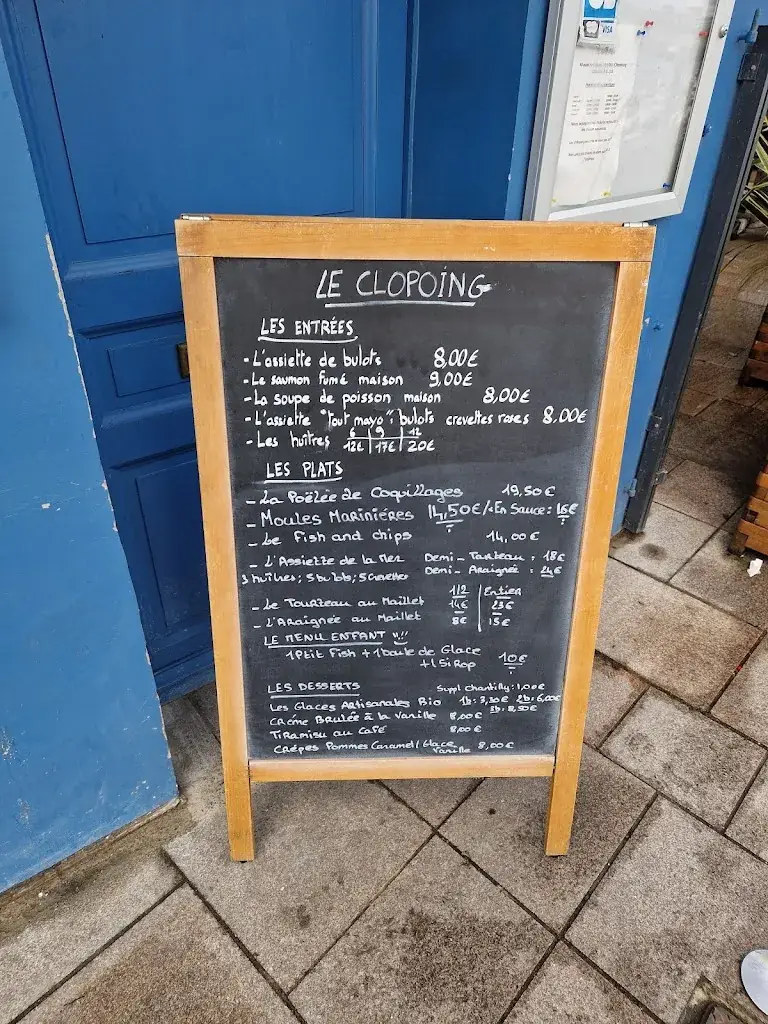 VISA
LE CLOPOING
LES ENTRÉES
- L'assiette de bulots 8,00€
- Le saumon fumé maison 9,00€
- La soupe de poisson maison 8,00€
- L'assiette "tout mayo"; bulots crevettes roses 8,00€
- Les huîtres 6 | 9 | 12
12€ | 17€ | 20€
LES PLATS
- La Poêlée de Coquillages 19,50€
- Moules Marinières 14,50€/. En Sauce: 16€
- Le Fish and chips 14,00€
- L'Assiette de la Mer Demi-Tourteau: 18€
3 huîtres; 5 bulots; 5 crevettes Demi-Araignée: 24€
1/2 | Entier
- Le Tourteau au Maillet 14€ | 23€
- L'Araignée au Maillet 8€ | 15€
LE MENU ENFANT
1 Ptit Fish + 1 boule de Glace
+ 1 Sirop 10€
LES DESSERTS Suppl chantilly: 1,00€
Les Glaces Artisanales Bio 1b: 3,30€ 2b: 6,00€
3b: 8,50€
Crème Brulée à la Vanille 8,00€
Tiramisu au Café 8,00€
Crêpes Pommes Caramel / Glace Vanille 8,00€